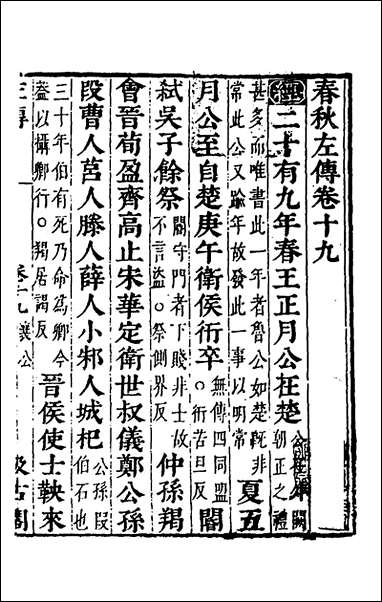 春秋左傳卷十九
經二十有九年春王正月公在楚公在外闕朝正之禮
甚多而唯書此一年者魯公如楚既非常此公又踰年故發此一事以明常夏五
月公至自楚庚午衛侯衎卒無傳四同盟○衎苦旦反閽
弒吳子餘祭閽守門者下賤非士故不言盜○祭側界反仲孫羯
會晉荀盈齊高止宋華定衛世叔儀鄭公孫
段曹人莒人滕人薛人小邾人城杞公孫段伯石也
三十年伯有死乃命爲卿今蓋以攝卿行○羯居謁反晉侯使士鞅來
左傳 一 卷十九 襄公 汲古閣